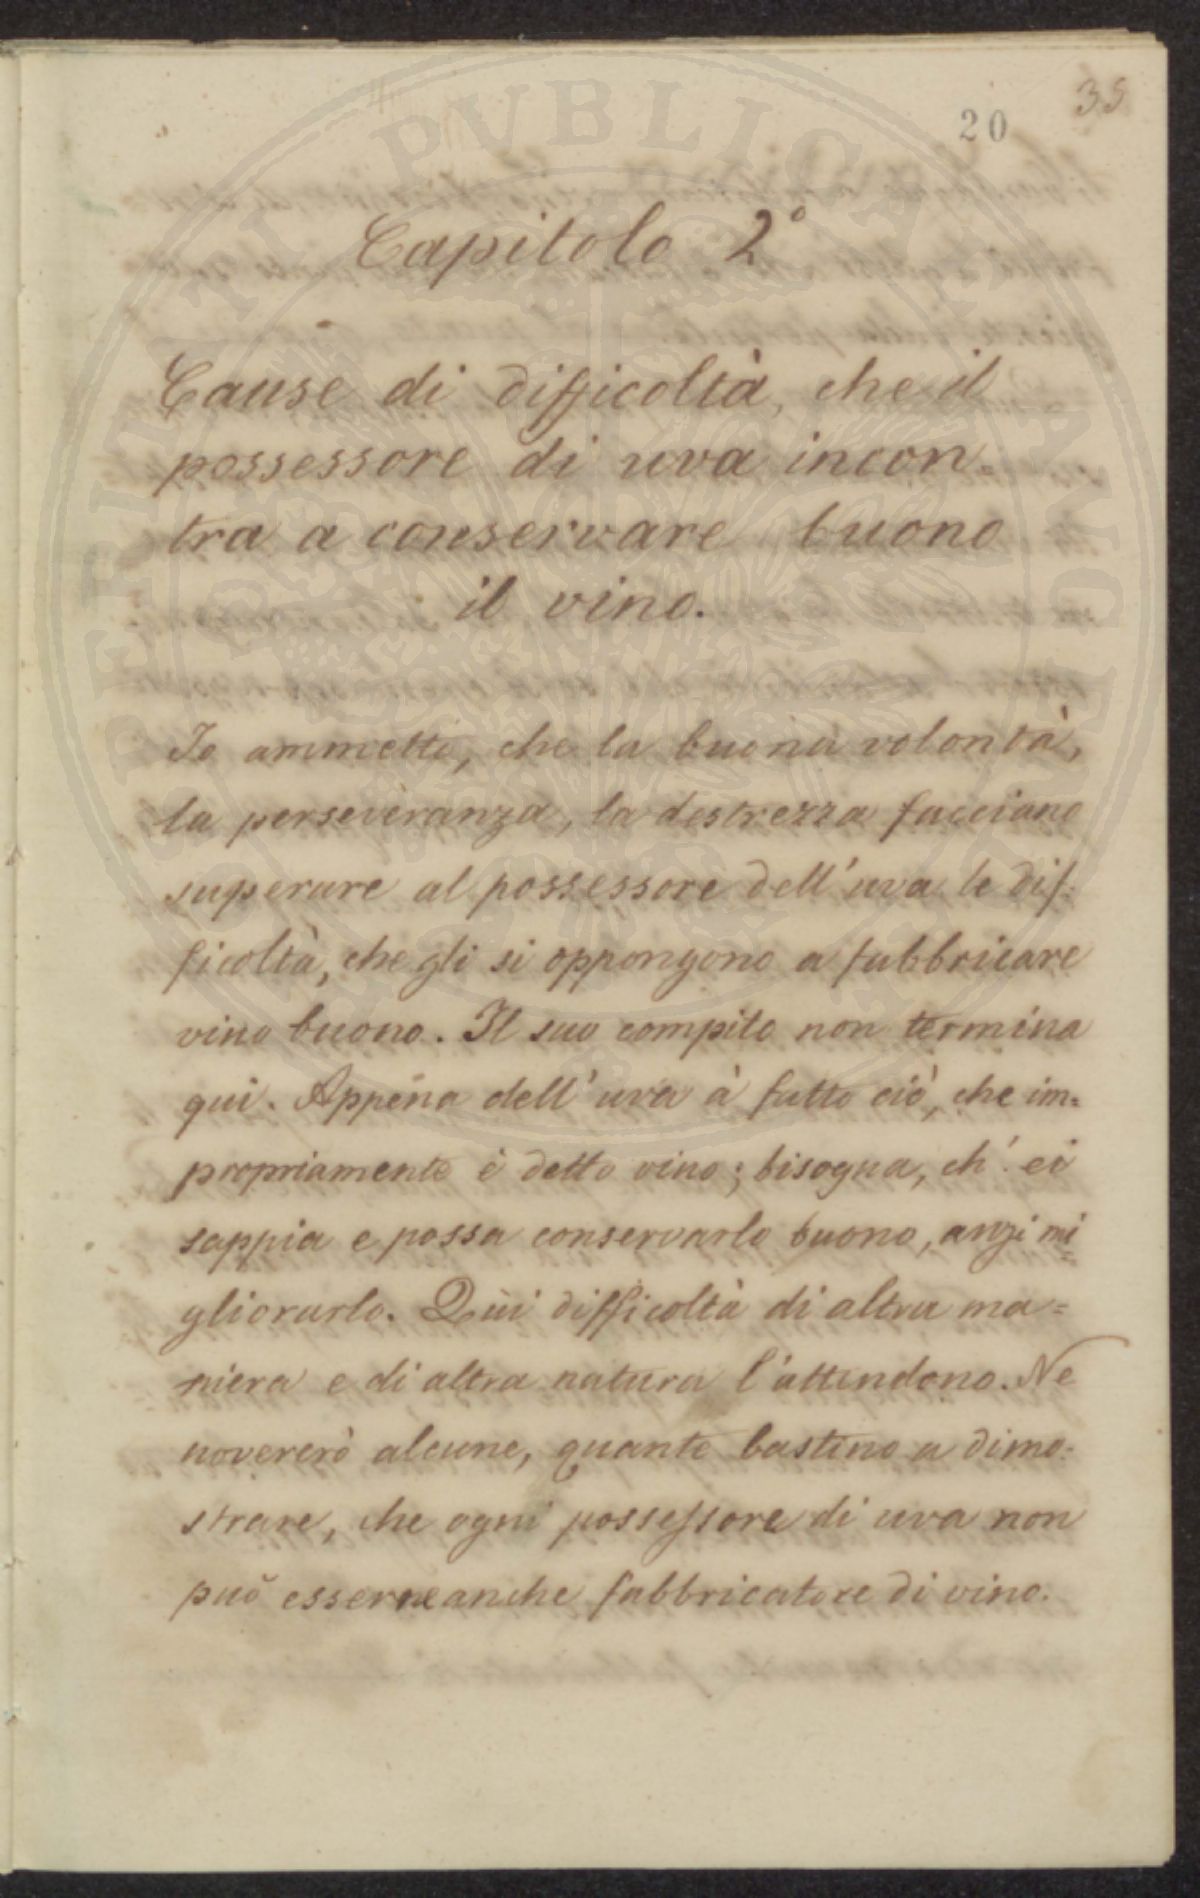 35
20
Capitolo 2°
Cause di difficoltà, che il
possessore di uva incon-
tra a conservare buono
il vino.
Io ammetto, che la buona volontà,
la perseveranza, la destrezza facciano
superare al possessore dell'uva le dif-
ficoltà, che gli si oppongono a fabbricare
vino buono. Il suo compito non termina
qui. Appena dell'uva à fatto ciò, che im=
propriamente è detto vino; bisogna, ch'ei
sappia e possa conservarlo buono, anzi mi=
gliorarlo. Qui difficoltà di altra ma=
niera e di altra natura l'attendono. Ne
novererò alcune, quante bastino a dimo-
strare, che ogni possessore di uva non
può esserne anche fabbricatore di vino.
PROSPERITATI PUBLICAE AUGENDAE